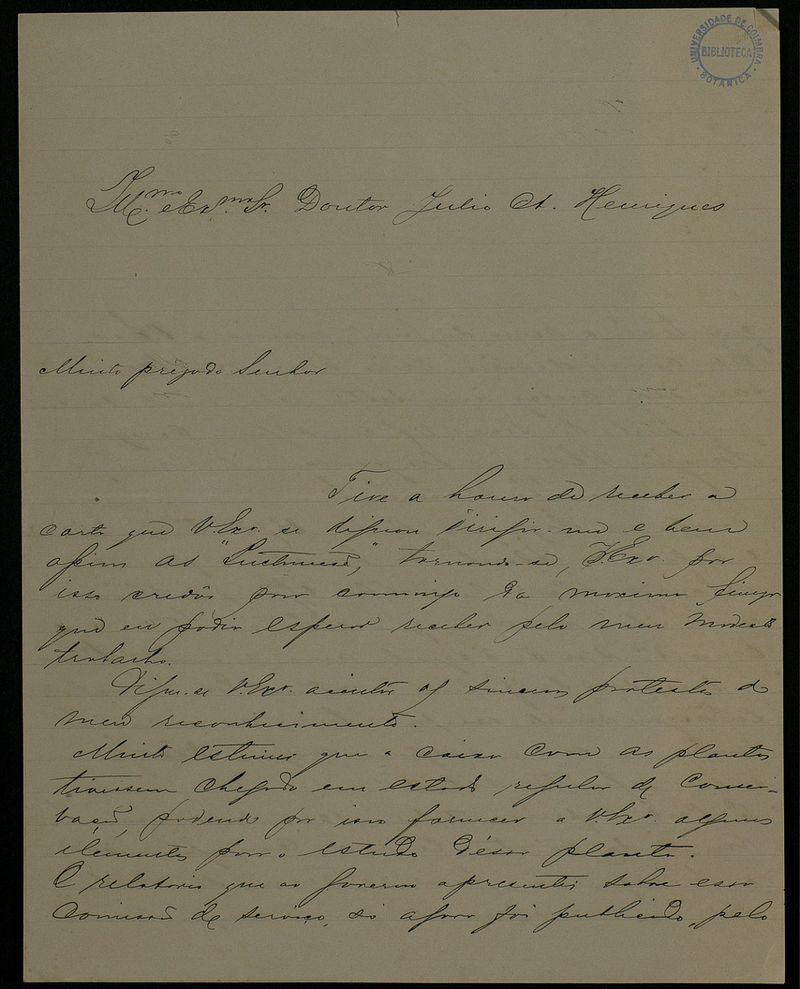 UNIVERSIDADE DE COIMBRA
BIBLIOTECA
BOTANICA
Ill.mo e Ex.mo Sr. Doutor Julio A. Henriques
Muito prezado Senhor
Tive a honra de receber a
carta que V. Exa. se dignou dirigir-me e bem
assim as tornando-se, V. Exa. por
isso credôr para commigo da maxima fineza
que eu podia esperar receber pelo meu modesto
trabalho.
Digne-se V. Exa. aceitar os sinceros protestos do
meu reconhecimento.
Muito estimei que a caixa com as plantas
tivessem chegado em estado regular de conser-
vação, podendo por isso fornecer a V. Exa. alguns
elementos para o estudo d'essas plantas.
O relatorio que ao Governo apresentei sobre essa
Comissão de serviço, só agora foi publicado, pelo